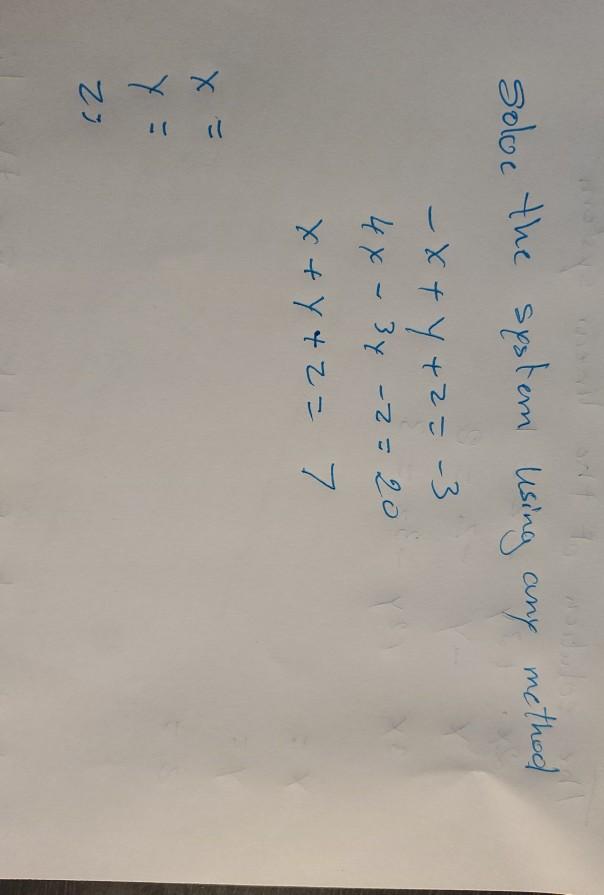 Solve the system using any method
-x + y + z = -3
4x - 3y - z = 20
x + y + z = 7
x =
y =
z =